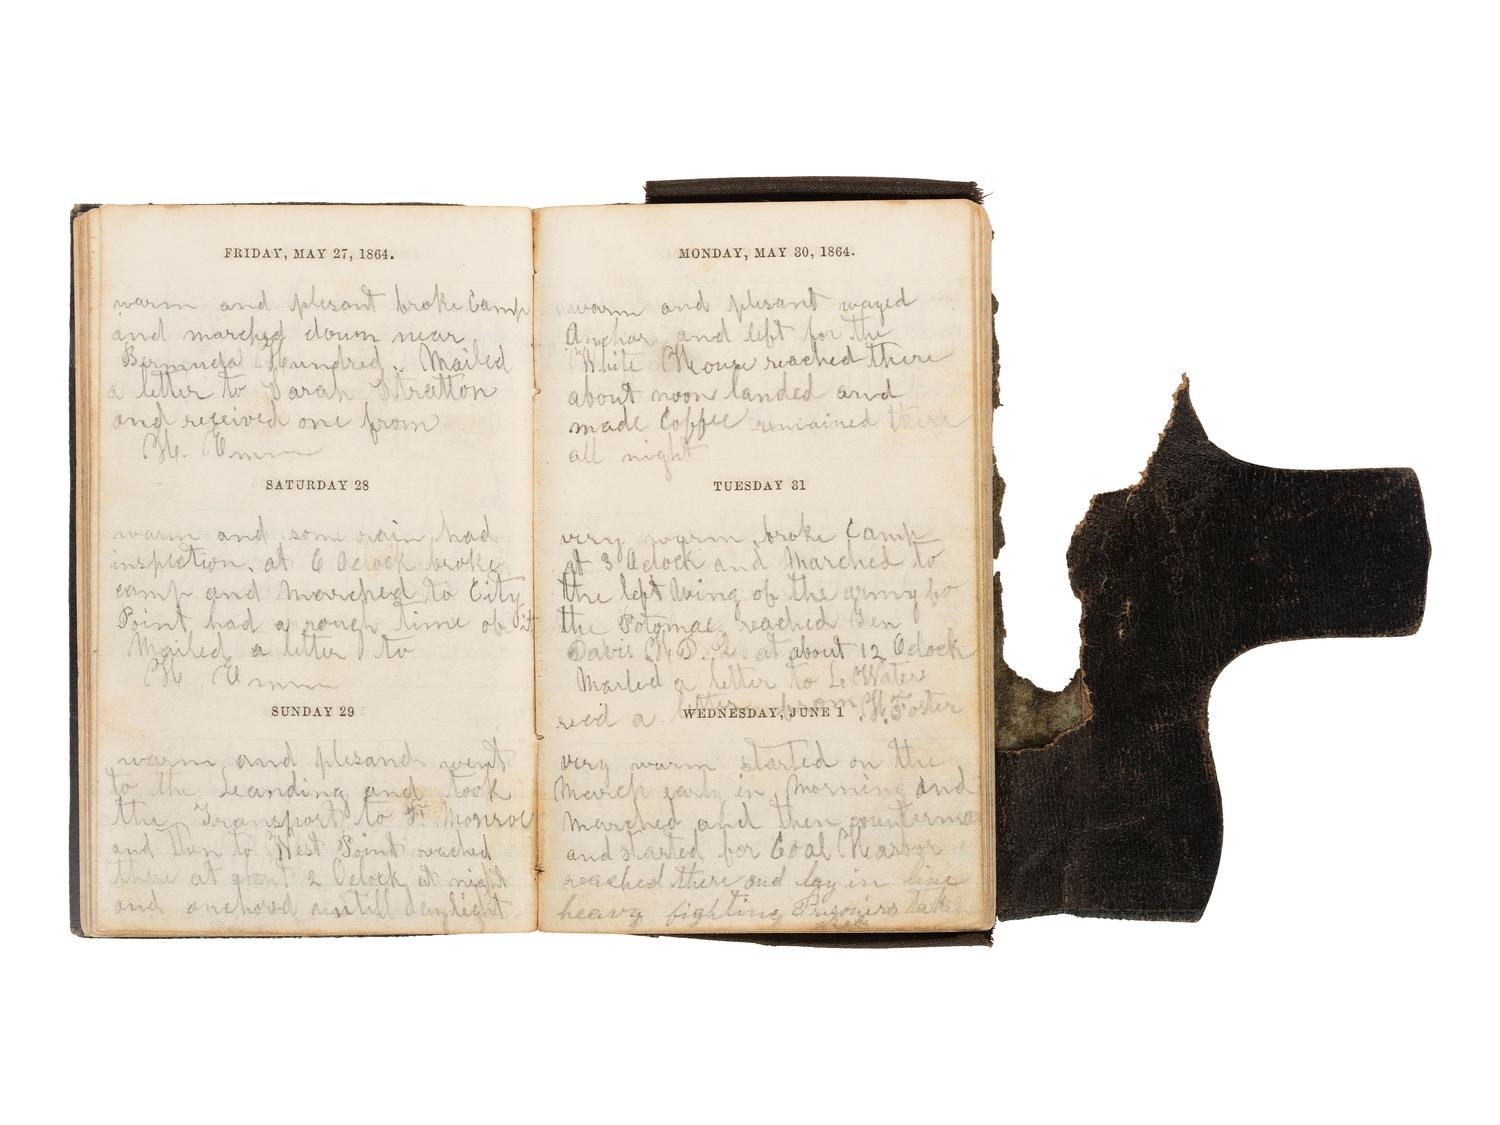 FRIDAY, MAY 27, 1864.
warm and plesant broke Camp
and marched down near
Bermuda Hundred. Mailed
a letter to Sarah Stratton
and received one from
H.
SATURDAY 28
warm and some rain had
inspection. at 6 Oclock broke
camp and Marched to City
Point had a rough time of it
Mailed a letter to
H
SUNDAY 29
warm and plesand went
to the Leanding and took
the Transport to Ft Monroe
and then to West Point reached
there at about 2 Oclock at night
and anchored untill daylight
MONDAY, MAY 30, 1864.
warm and plesant wayed
Anchar and left for the
White House reached there
about noon landed and
made Coffee remained there
all night
TUESDAY 31
very warm broke Camp
at 3 Oclock and Marched to
the left Wing of the army fo
the Potomac reached Gen
Davis at about 12 Oclock
Mailed a letter to
recd a letter from H. Foster
WEDNESDAY, JUNE 1
very warm started on the
March early in Morning And
Marched and then counterma
and started for Coal Harbor
reached there and lay in line
heavy fighting Prisoners take